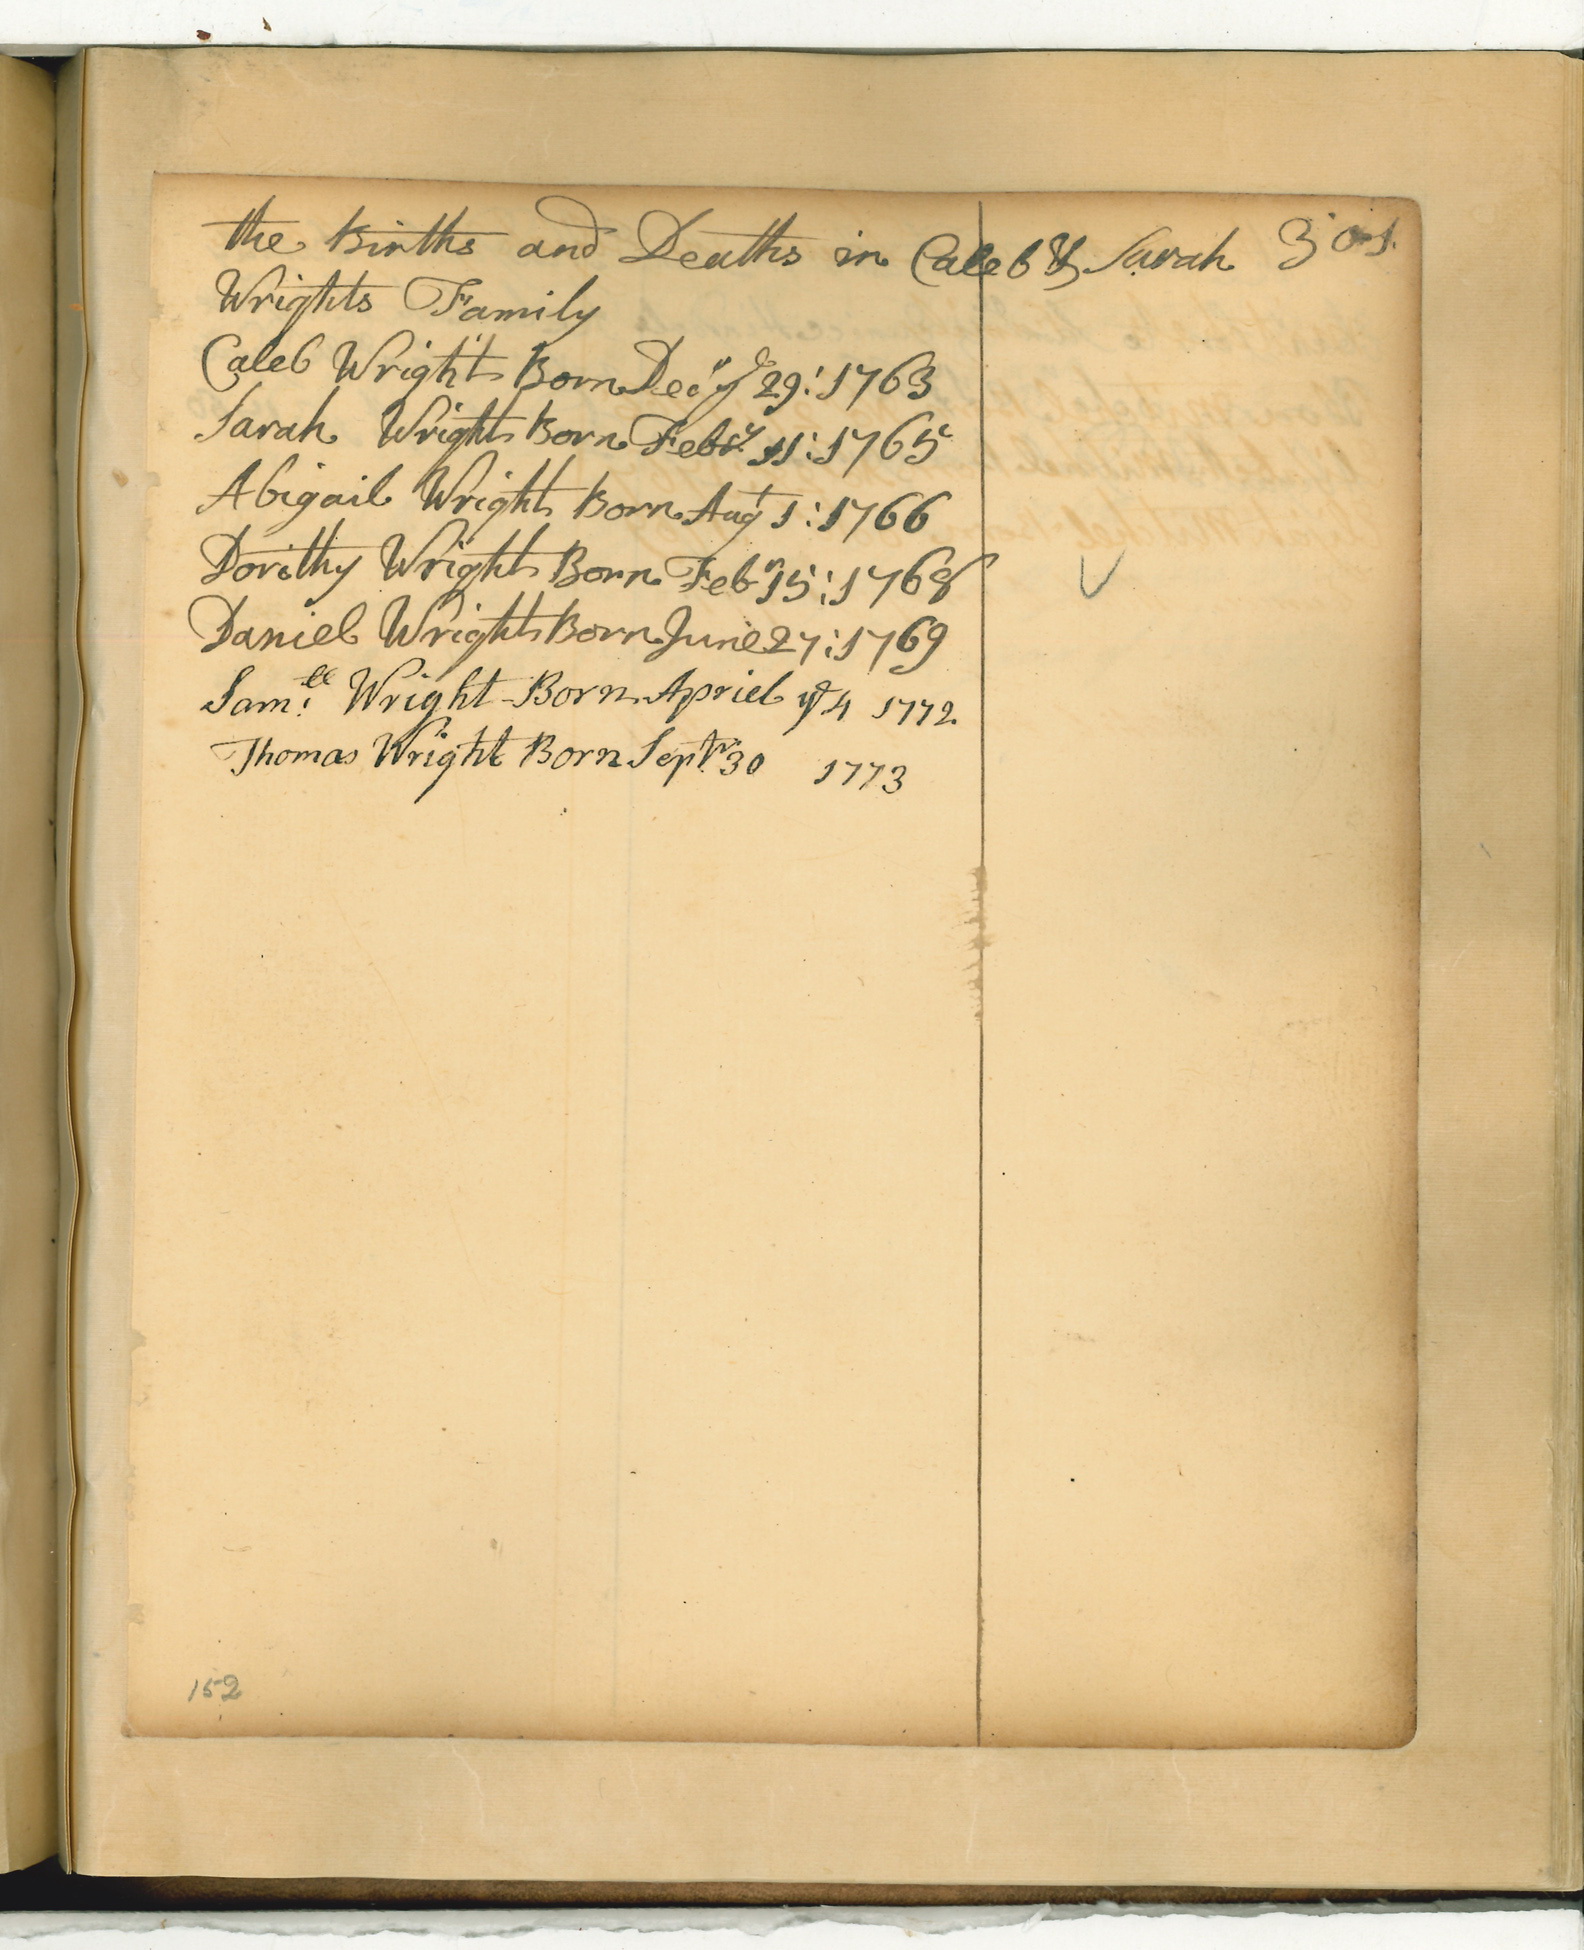 the Births and Deaths in Caleb & Sarah 301
Wrights Family
Caleb Wright Born Decr ye 29: 1763
Sarah Wright Born Febry 11: 1765
Abigail Wright Born Augt 1: 1766
Dorithy Wright Born Febr 15: 1768
Daniel Wright Born June 27: 1769
Samll Wright Born Apriel ye 4 1772
Thomas Wright Born Septr 30 1773
152